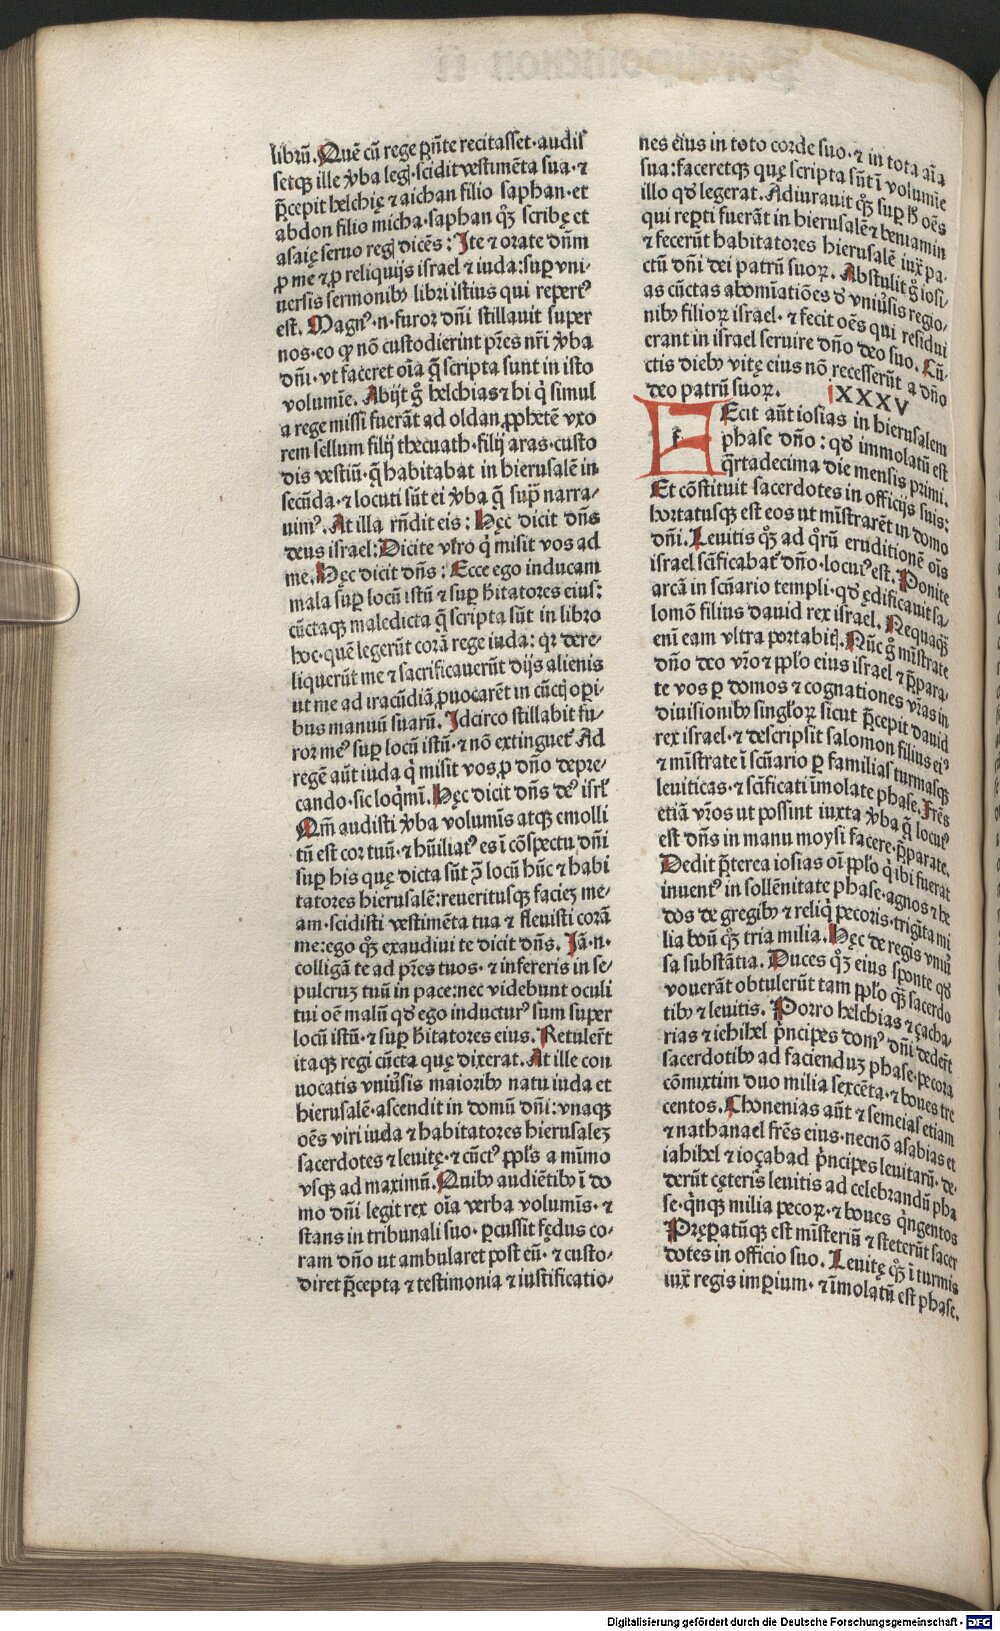 librū. Quē cū rege p̄nte recitasset·audis
setq̄ ille v̓ba legꝭ·scidit vestimēta sua·⁊
p̄cepit helchię ⁊ aichan filio saphan·et
abdon filio micha·saphan qͦꝫ scribę et
asaię seruo regꝭ dicēs: Ite ⁊ orate dn̄m
ꝓ me ⁊ ꝓ reliquijs israel ⁊ iuda: suꝑ vni-
uersis sermonibꝰ libri istius qui repertꝰ
est. Magnꝰ·n·furor dn̄i stillauit super
nos·eo qꝙ nō custodierint pr̄es nr̄i v̓ba
dn̄i·vt faceret oīa q̄ scripta sunt in isto
volumīe. Abijt g̊ helchias ⁊ hi qͥ simul
a rege missi fuerāt ad oldan ꝓphetē vxo
rem sellum filij thecuath·filij aras·custo
dis vestiū·q̄ habitabat in hierusalē in
secūda·⁊ locuti sūt ei v̓ba q̄ supͣ narra-
uimꝰ. At illa rn̄dit eis: Hęc dicit dn̄s
deus israel: Dicite viro qͥ misit vos ad
me. Hęc dicit dn̄s: Ecce ego inducam
mala suꝑ locū istū ⁊ suꝑ hītatores eius:
cūctaqꝫ maledicta q̄ scripta sūt in libro
hoc·quē legerūt corā rege iuda: qꝛ dere-
liquerūt me ⁊ sacrificauerūt dijs alienis
ut me ad iracūdiā ꝓuocarēt in cūctꝭ oꝑi-
bus manuū suarū. Idcirco stillabit fu-
ror meꝰ suꝑ locū istū·⁊ nō extinguet᷑ Ad
regē aūt iuda qͥ misit vos ꝓ dn̄o depre-
cando·sic loqͥmī. Hęc dicit dn̄s deꝰ isrl̄
Qm̄ audisti v̓ba volumīs atqꝫ emolli
tū est cor tuū·⁊ hūiliatꝰ es ī cōspectu dn̄i
suꝑ his quę dicta sūt ꝯ̄ locū hūc ⁊ habi
tatores hierusalē: reueritusqꝫ facieꝫ me-
am·scidisti vestimēta tua ⁊ fleuisti corā
me: ego qͦꝫ exaudiui te dicit dn̄s. Iā·n·
colligā te ad pr̄es tuos·⁊ infereris in se-
pulcruꝫ tuū in pace: nec videbunt oculi
tui oē malū qd̓ ego inducturꝰ sum super
locū istū·⁊ suꝑ hītatores eius. Retuler̄t
itaqꝫ regi cūcta quę dixerat. At ille con
uocatis vniu̓sis maioribꝰ natu iuda et
hierusalē·ascendit in domū dn̄i: vnaqꝫ
oēs viri iuda ⁊ habitatores hierusaleꝫ
sacerdotes ⁊ leuitę·⁊ cūctꝰ ꝓpl̓s a mīmo
vsqꝫ ad maximū. Quibꝰ audiētibꝰ ī do
mo dn̄i legit rex oīa verba volumīs·⁊
stans in tribunali suo·ꝑcussit fędus co-
ram dn̄o ut ambularet post eū·⁊ custo-
diret p̄cepta ⁊ testimonia ⁊ iustificatio-
nes eius in toto corde suo·⁊ in tota aīa
sua: faceretqꝫ quę scripta sūt ī volumīe
illo qd̓ legerat. Adiurauit qͦꝫ suꝑ hͦ oēs
qui reꝑti fuerāt in hierusalē ⁊ beniamin
⁊ fecerūt habitatores hierusalē iux̄ pa-
ctū dn̄i dei patrū suoꝝ. Abstulit g̊ iosi-
as cūctas abomīatiōes d̓ vniu̓sis regio-
nibꝰ filioꝝ israel·⁊ fecit oēs qui residui
erant in israel seruire dn̄o deo suo. Cū-
ctis diebꝰ vitę eius nō recesserūt a dn̄o
deo patrū suoꝝ. XXXV
FEcit aūt iosias in hierusalem
phase dn̄o: qd̓ immolatū est
qͣrtadecima die mensis primi.
Et cōstituit sacerdotes in officijs suis:
hortatusqꝫ est eos ut mīstrarēt in domo
dn̄i. Leuitis qͦꝫ ad qͦrū eruditionē oīs
israel scīficabat᷑ dn̄o·locutꝰ est. Ponite
arcā in scn̄ario templi·qd̓ ędificauit sa-
lomō filius dauid rex israel. Nequaqꝫ̄
enī eam vltra portabitꝭ. Nūc g̊ mīstrate
dn̄o deo vr̄o ⁊ ꝓpl̓o eius israel ⁊ p̄para-
te vos ꝑ domos ⁊ cognationes vr̄as in
diuisionibꝰ singl̓oꝝ sicut p̄cepit dauid
rex israel·⁊ descripsit salomon filius eiꝰ
⁊ mīstrate ī scn̄ario ꝑ familias turmasqꝫ
leuiticas·⁊ scīficati īmolate phase. Fr̄es
etiā vr̄os ut possint iuxta v̓ba q̄ locutꝰ
est dn̄s in manu moysi facere·p̄parate.
Dedit p̄terea iosias oī ꝓpl̓o qͥ ibi fuerat
inuentꝰ in sollēnitate phase·agnos ⁊ he
dos de gregibꝰ ⁊ reliqͥ pecoris·trigīta mi
lia boū qͦꝫ tria milia. Hęc de regis vniu̓
sa substātia. Duces qͦꝫ eius sponte qd̓
vouerāt obtulerūt tam ꝓpl̓o qꝫ̄ sacerdo
tibꝰ ⁊ leuitis. Porro helchias ⁊ çacha-
rias ⁊ iehihel pͥncipes domꝰ dn̄i deder̄t
sacerdotibꝰ ad facienduꝫ phase·pecora
cōmixtim duo milia sexcēta·⁊ boues tre
centos. Chonenias aūt ⁊ semeias etiam
⁊ nathanael fr̄es eius·necnō asabias et
iahihel ⁊ ioçabad pͥncipes leuitarū·de-
derūt cęteris leuitis ad celebrandū pha
se·qͥnqꝫ milia pecoꝝ·⁊ boues qͥngentos
Pręꝑatūqꝫ est mīsteriū ⁊ steterūt sacer
dotes in officio suo. Leuitę qͦꝫ ī turmis
iux̄ regis imꝑium·⁊ īmolatū est phase.
Digitalisierung gefördert durch die Deutsche Forschungsgemeinschaft - DFG